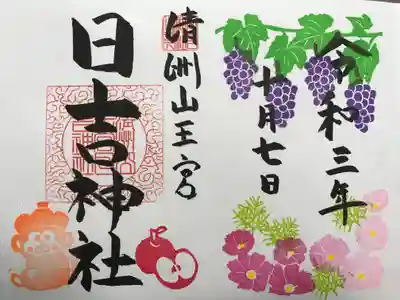 令和三年
十月七日
清洲山王宮
日吉神社